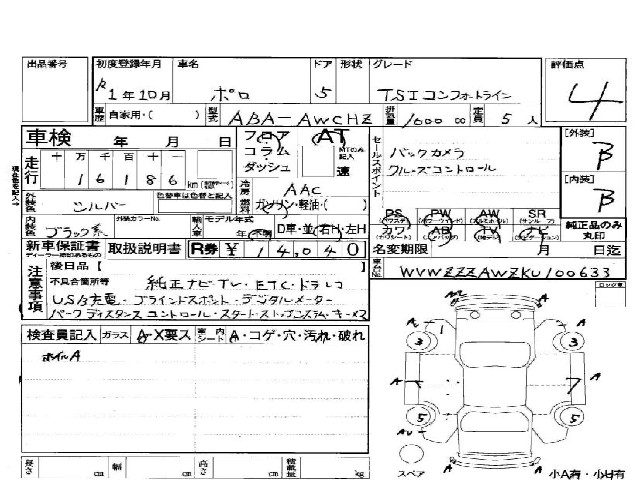 出品番号 初度登録年月 車名 ドア 形状 グレード 評価点
R1年10月 ポロ 5 TSIコンフォートライン 4
車歴 自家用・( ) 型式 ABA-AWCHZ 排気量 1000 cc 定員 5人
車検 年 月 日 フロア AT [外装]
コラム MTのみ記入 セールスポイント バックカメラ B
走行 十 万 千 百 十 一 ダッシュ 速 クルーズコントロール
1 6 1 8 6 km [内装]
冷房 AAC B
外装色 シルバー 色替車は色替と記入 燃料 ガソリン・軽油・( )
PS PW AW SR
内装色 ブラック系 外装カラーNo. 輸入車 モデル年式 D車・並 右H・左H
年(不明) カワ AB TV ナビ 純正品のみ丸印
新車保証書 取扱説明書 R券 ¥14,040 名変期限 月 日迄
注意事項 後日品【 】 車台No. WVWZZZAWZKU100633
不具合箇所等 純正ナビTV・ETC・ドラレコ
USB充電・ブラインドスポット・デジタルメーター
パークディスタンスコントロール・スタートストップシステム・キーX2
検査員記入 ガラス A・X要ス 室内シート A・コゲ・穴・汚れ・破れ
ホイルA
A
A 1 A
3 3
A 7 A
5 5
A
スペア A 小A有・小U有
長さ cm 幅 cm 高さ cm 積載量 kg